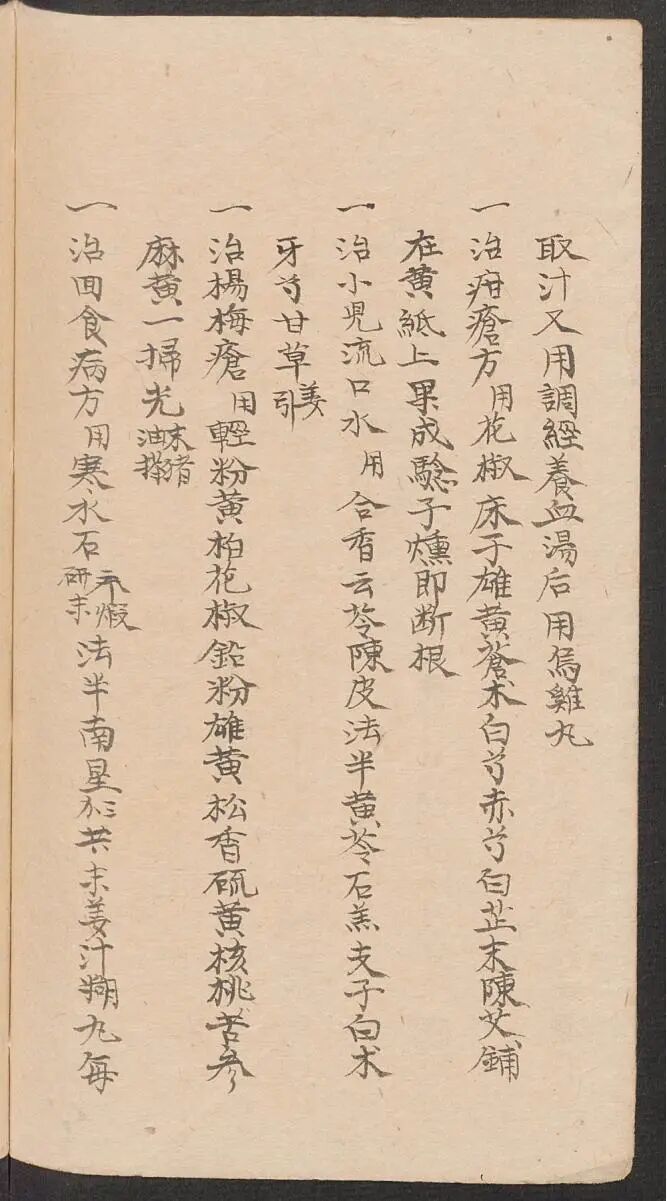 取汁又用調經養血湯后用烏雞丸
一治疳瘡方用花椒床子雄黄蒼术白芍赤芍白芷末陳艾鋪
在黄紙上果成騐子燻即断根
一治小児流口水用合香云苓陳皮法半黄苓石羔支子白术
牙芍甘草姜引
一治楊梅瘡用輕粉黄柏花椒鉛粉雄黄松香硫黄核桃苦参
麻黄一掃光末猪油搽
一治回食病方用寒水石煅研末法半南星共末姜汁糊丸每